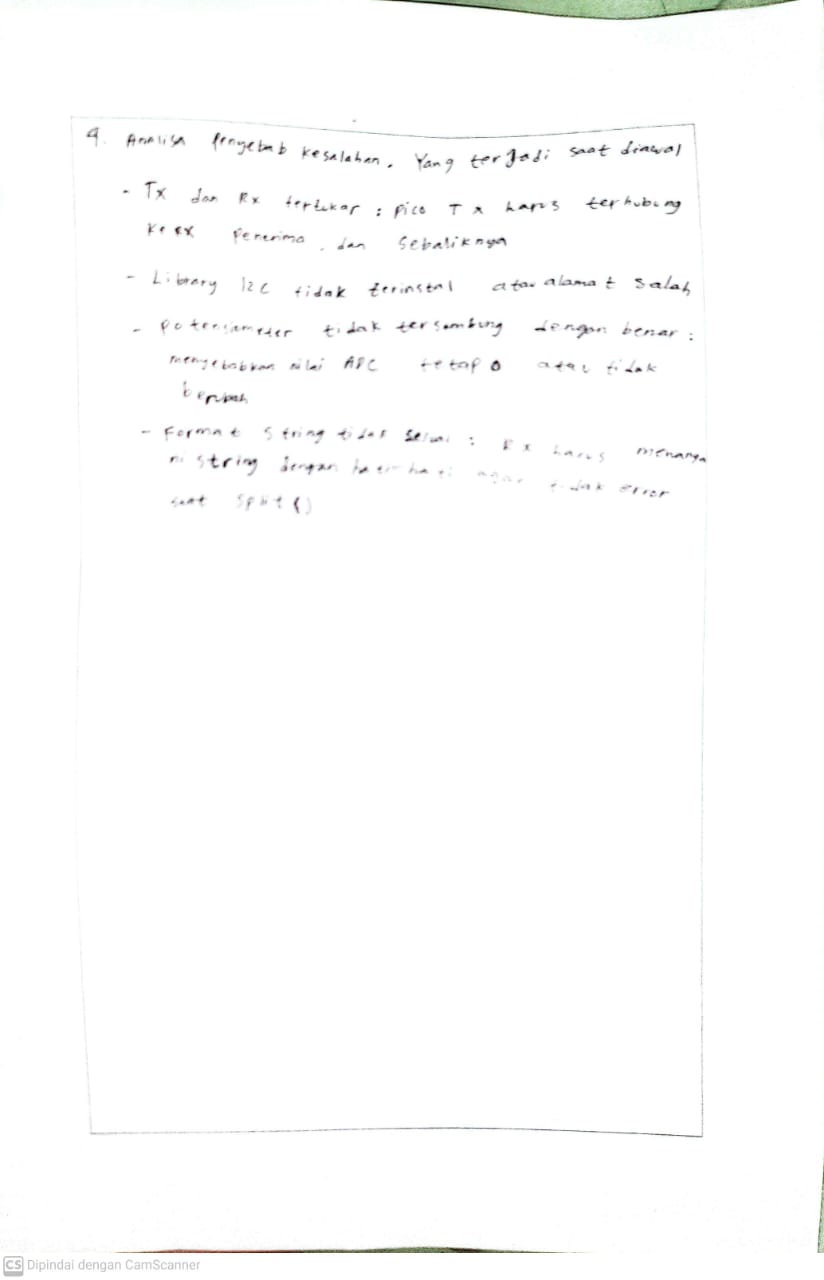 4. Analisa Penyebab kesalahan. Yang terjadi saat diawal
- Tx dan Rx tertukar : pico Tx harus terhubung
ke RX penerima, dan sebaliknya
- Library I2C tidak terinstal atau alamat salah
- potensiometer tidak tersambung dengan benar :
menyebabkan nilai ADC tetap 0 atau tidak
berubah
- Format string tidak sesuai : RX harus menanga
ni string dengan hati-hati agar tidak error
saat split()
CS Dipindai dengan CamScanner